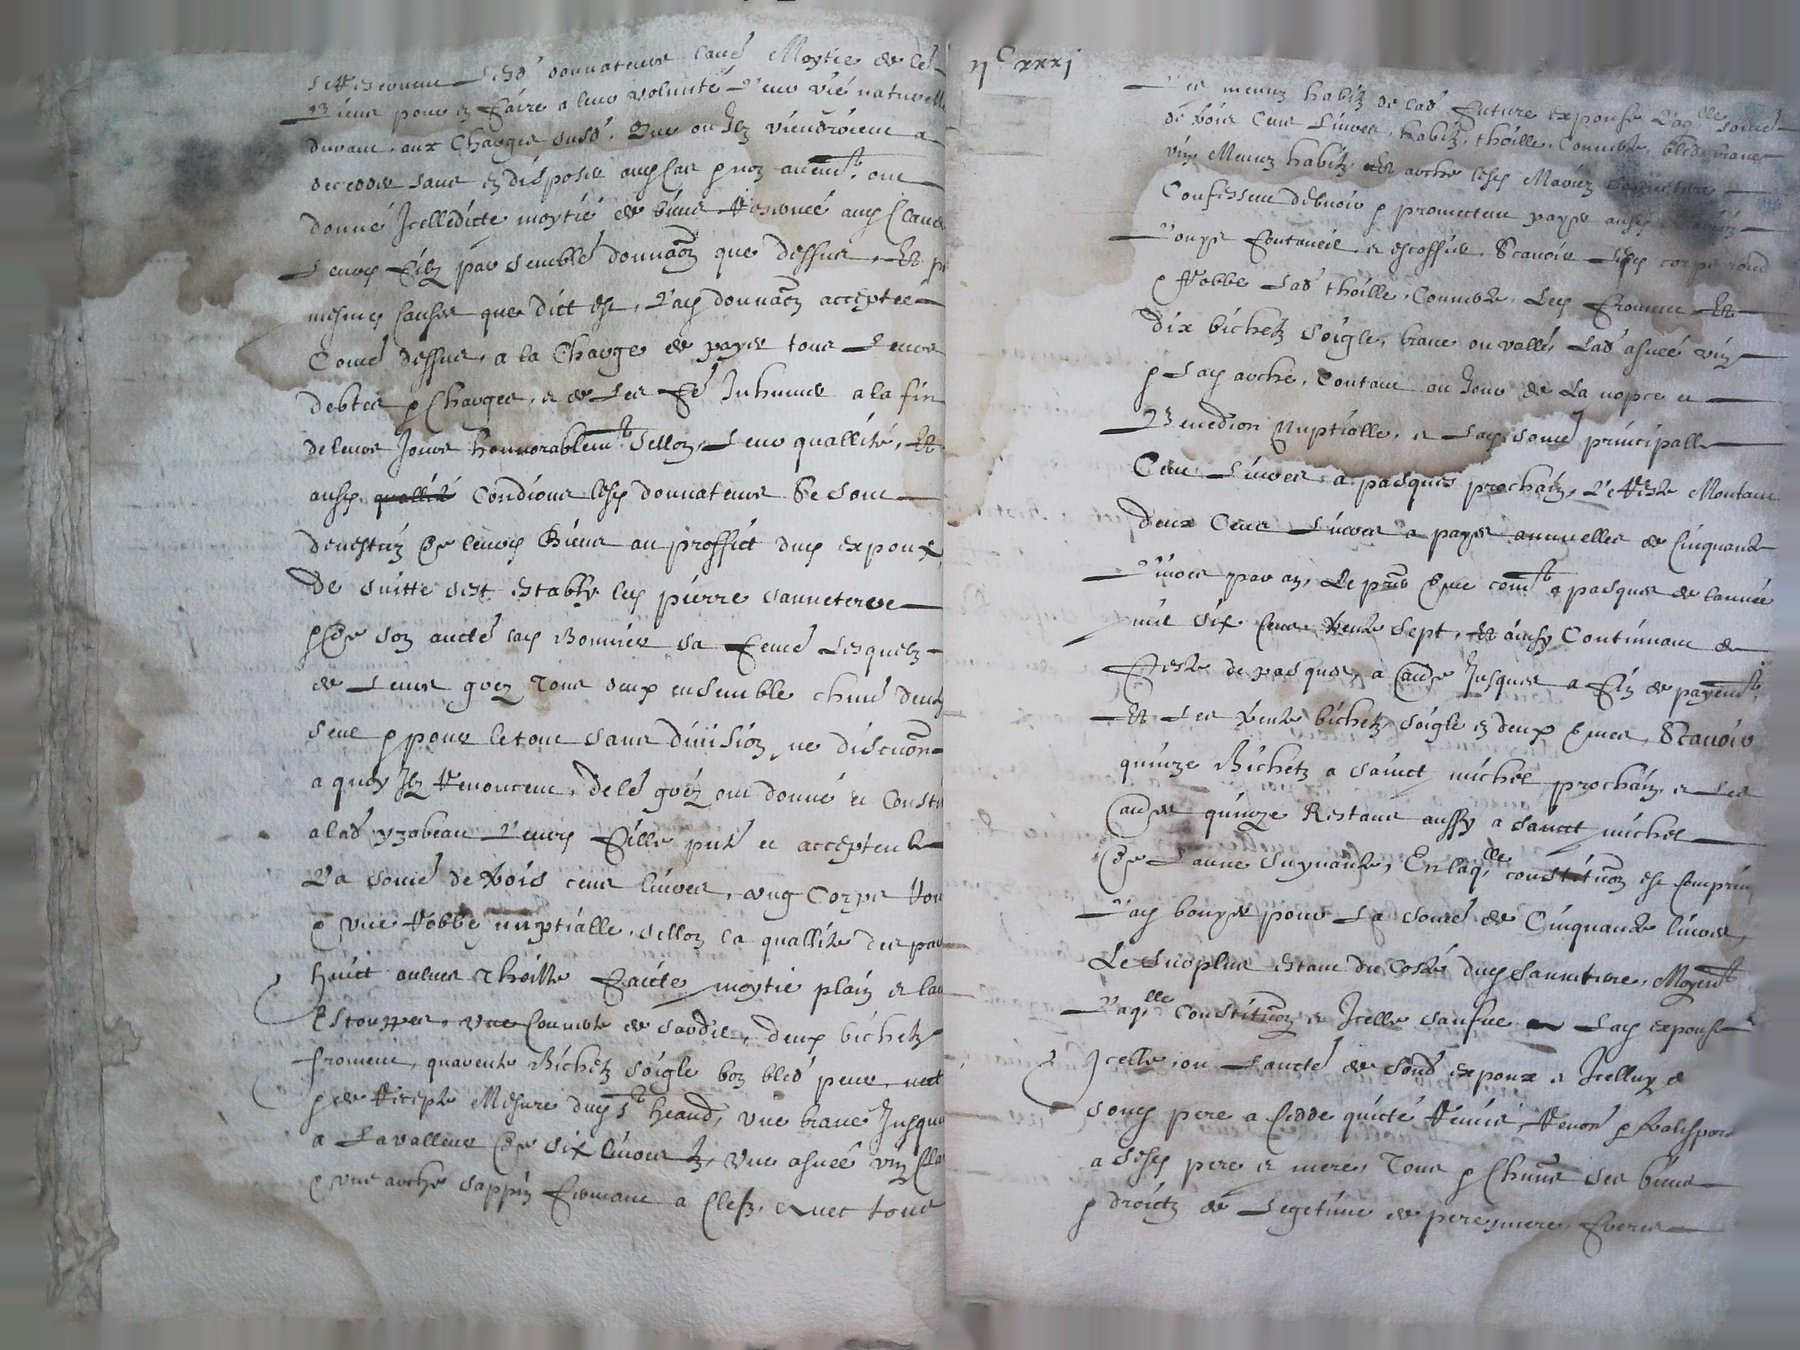 Reserveront lesd donnateurs laud Moytié de ses
Biens pour en faire a leur volunté leur vie naturelle
durant, aux Charges susd. Que ou Ilz viendroient a
deceder sans en disposer aud cas
donné Icelledicte moytié de biens Reservée aud Claude
Leurd filz par semblé donnaon que dessus, Et
mesmes causes que dict est, Lad donnaon acceptée
Comme dessus, a la Charge de payer tous Leurs
debtes & Charges, & de Les fe Inhumer a la fin
de leurs Jours honnorablemt sellon Leur quallité, Et
ausd Condions lesd donnateurs Se sont
devestuz de leursd Biens au proffict dud expoux
De suitte sest estably led pierre sanneterre
& de son aucté lad Bonnier sa femme Lesquelz
de Leurs grez Tous deux ensemble chun deux
seul & pour le tout sans division ne discuon
a quoy Ilz Renoncent, de lé grez ont donné et constitué
a lad yzabeau Leurd fille pnte et acceptente
La somme de trois cens livres, ung Corps
& une Robbe nuptialle, sellon sa quallité des par
huict aulnes thoille faicte, moytié plain & lau
Estouppes, une Couverte de sardis, deux bichetz
froment, quarente Bichetz soigle bon bled pur, net
& de Recepte Mesure dud St heand, une brave Jusques
a La valleur de six livres, une asnée vin
& une arche sappin fermant a clefz, avec tous
IIC xxxj
Les menuz habitz de lad future expouse Laqlle somme
de trois Cens Livres, habitz, thoille, Couverte, bledz, brave
vin, Menuz habitz, et arche lesd Mariez sanneterre
Confessent debvoir & promectent payer ausd
Louys fontaneil & escoffier, Scavoir Lesd corps rond
& Robbe Lad thoille, Couverte, Led froment Et
Dix bichetz soigle, brave ou vallr, Lad asnée vin
& Lad arche, Contant au Jour de La nopce et
Benedion Nuptialle, & Lad somme principalle
Cent Livres a pasques prochain, Le Reste Montant
Deux Cens Livres a payes annuelles de Cinquante
Livres par an, Le prier tme comt a pasques de lannée
mil six cens trente sept, et ainsy Continuant de
feste de pasques a aultre Jusques a fin de payemt
Et Les trente bichetz soigle en deux tmes, Scavoir
quinze Bichetz a sainct michel prochain & Les
aultres quinze Restans aussy a sainct michel
de Lannee suyvante, En laqlle constituon est comprins
Lad bouyer pour La somme de Cinquante livres
Le surplus estant du costé dud sanneterre, Moyent
Laqlle Constituon & Icelle sauve Lad expouse
Icelle, ou Laucté de sond expoux & Icelluy de
sond pere a cedde quicté Remis, Renon & transporté
a sesd pere & mere, Tous & Chuns ses biens
& droictz de Legetime de pere, mere, freres